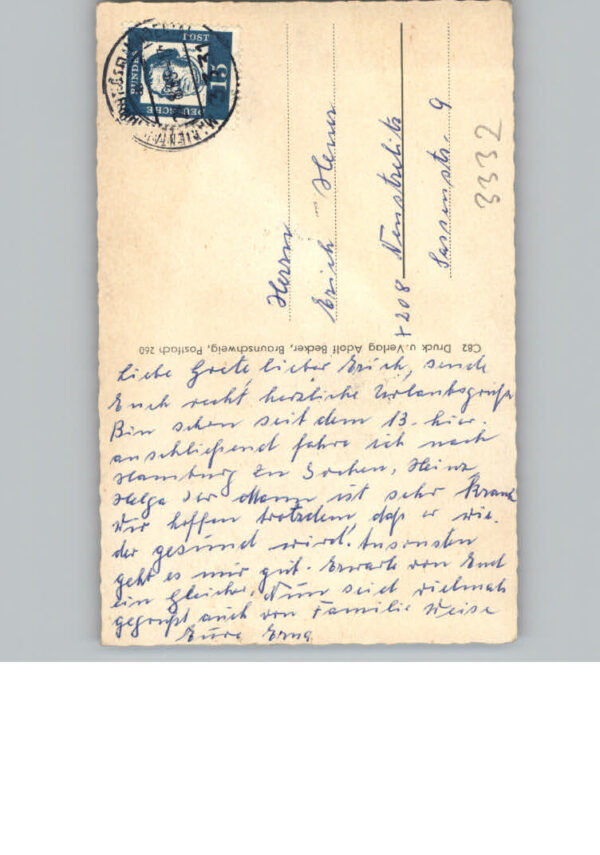 DEUTSCHE
BUNDES
POST
15
Herrn
Erich
Neustrelitz
9
3332
C82 Druck u. Verlag Adolf Becker, Braunschweig, Postfach 260
Liebe Grete lieber Erich, sende
Euch recht herzliche Urlaubsgrüße
Bin schon seit dem 13. hier.
anschließend fahre ich nach
Hamburg zu Jochen, Heinz
Helga der Mann ist sehr krank
Wir hoffen trotzdem, daß er wie
der gesund wird. Ansonsten
geht es mir gut. Erwarte von Euch
ein Gleiches. Nun seid vielmals
gegrüßt auch von Familie Weise
Eure Erna